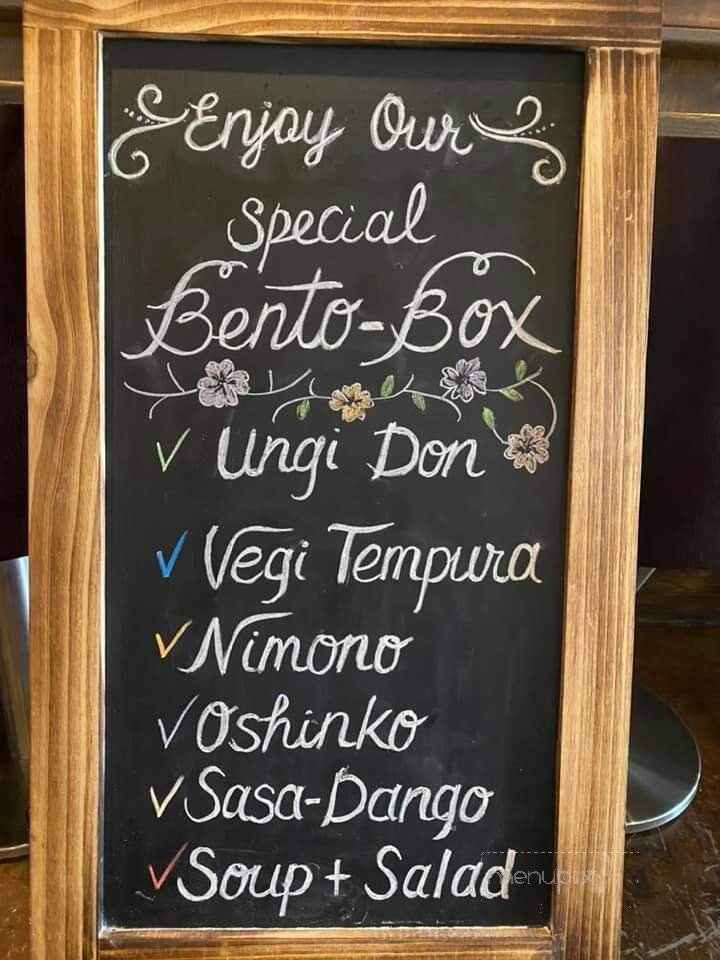 Enjoy Our
Special
Bento-Box
Ungi Don
Vegi Tempura
Nimono
Oshinko
Sasa-Dango
Soup + Salad
menupix